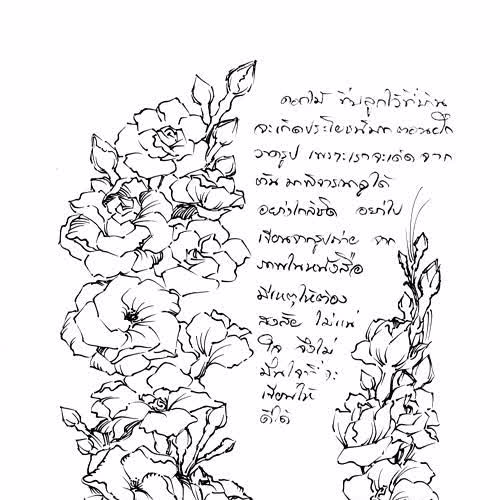 ดอกไม้ ที่ปลูกไว้ที่บ้าน
จะเกิดประโยชน์มาก ตอนฝึก
วาดรูป เพราะเราจะเด็ด จาก
ต้น มาพิจารณาดูได้
อย่างใกล้ชิด อย่าไป
เขียนจากรูปถ่าย จาก
ภาพในหนังสือ
มีเหตุให้ต้อง
สงสัย ไม่แน่
ใจ จึงไม่
มั่นใจที่จะ
เขียนให้
ดีได้